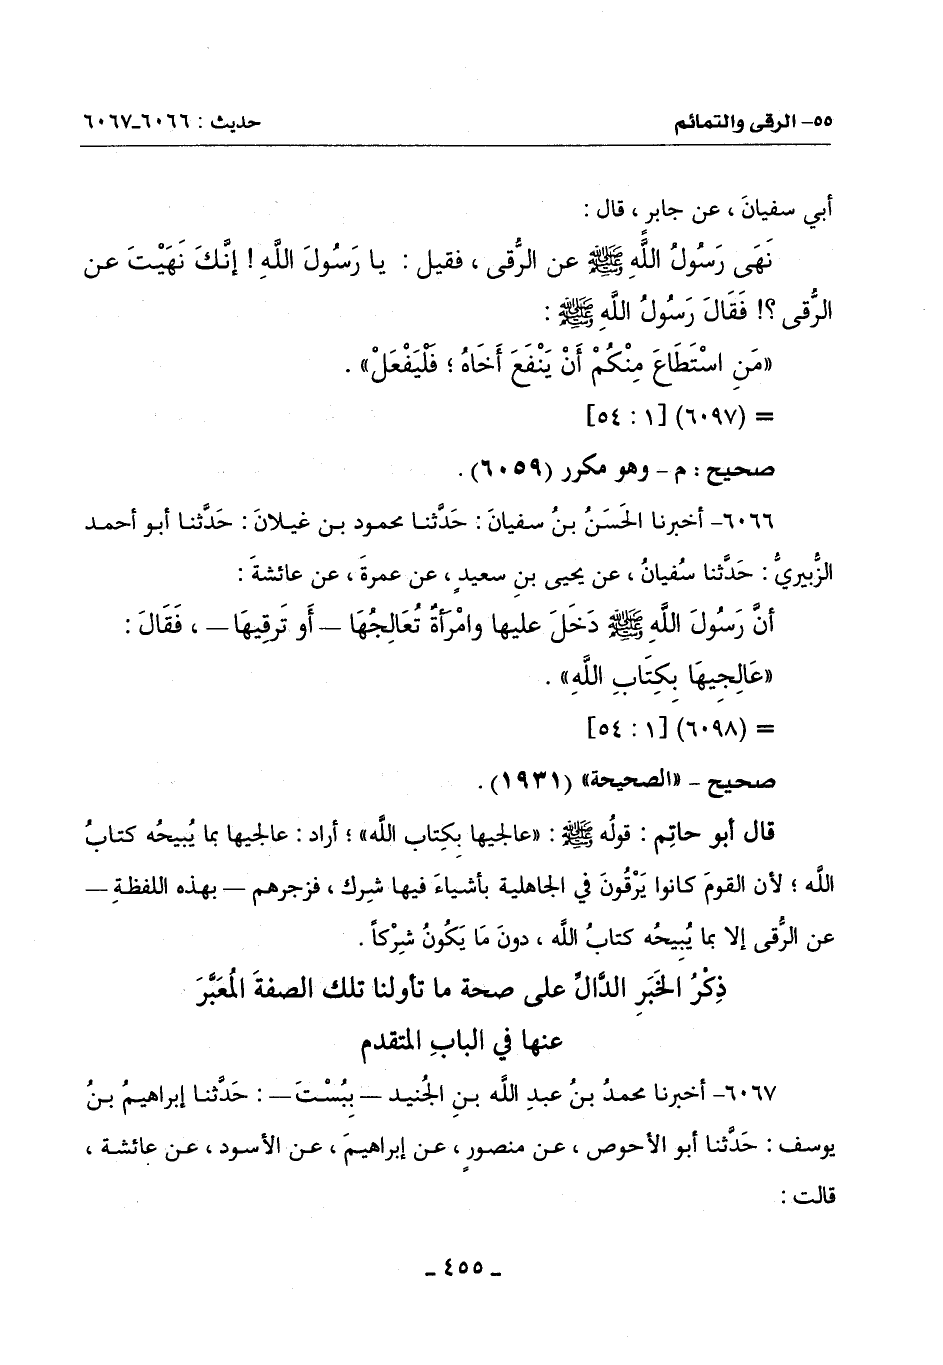 ٥٥- الرقى والتمائم حديث : ٦٠٦٦-٦٠٦٧
أبي سفيانَ ، عن جابرٍ ، قال :
نَهَى رَسُولُ اللَّهِ ﷺ عن الرُّقى ، فقيل : يا رَسُولَ اللَّهِ ! إنَّكَ نَهَيْتَ عن
الرُّقى ؟! فَقَالَ رَسُولُ اللَّهِ ﷺ :
«مَنِ اسْتَطَاعَ مِنْكُمْ أَنْ يَنْفَعَ أَخَاهُ ؛ فَلْيَفْعَلْ» .
= (٦٠٩٧) [١ : ٥٤]
صحيح : م - وهو مكرر (٦٠٥٩) .
٦٠٦٦- أخبرنا الحَسَنُ بنُ سفيانَ : حَدَّثنا محمود بن غيلانَ : حَدَّثنا أبو أحمد
الزُّبيريُّ : حَدَّثنا سُفيانُ ، عن يحيى بنِ سعيدٍ ، عن عمرةَ ، عن عائشةَ :
أنَّ رَسُولَ اللَّهِ ﷺ دَخَلَ عليها وامْرَأةٌ تُعَالِجُهَا – أَو تَرقِيهَا – ، فَقَالَ :
«عَالِجِيهَا بِكِتَابِ اللَّهِ» .
= (٦٠٩٨) [١ : ٥٤]
صحيح - «الصحيحة» (١٩٣١) .
قال أبو حاتِم : قولُه ﷺ : «عالجيها بِكتاب اللَّه» ؛ أراد : عالجيها بما يُبيحُه كتابُ
اللَّه ؛ لأن القومَ كانوا يَرْقُونَ في الجاهلية بأشياءَ فيها شِرك ، فزجرهم – بهذه اللفظةِ –
عن الرُّقى إلا بما يُبِيحُه كتابُ اللَّه ، دونَ مَا يَكُونُ شِرْكاً .
ذِكْرُ الخَبَرِ الدَّالِّ على صحة ما تأولنا تلك الصفةَ المُعَبَّرَ
عنها في البابِ المتقدم
٦٠٦٧- أخبرنا محمدُ بنُ عبدِ اللَّه بنِ الجُنيد – بِبُسْتَ – : حَدَّثنا إبراهيمُ بنُ
يوسف : حَدَّثنا أبو الأحوص ، عن منصورٍ ، عن إبراهيمَ ، عن الأسود ، عن عائشة ،
قالت :
- ٤٥٥ -